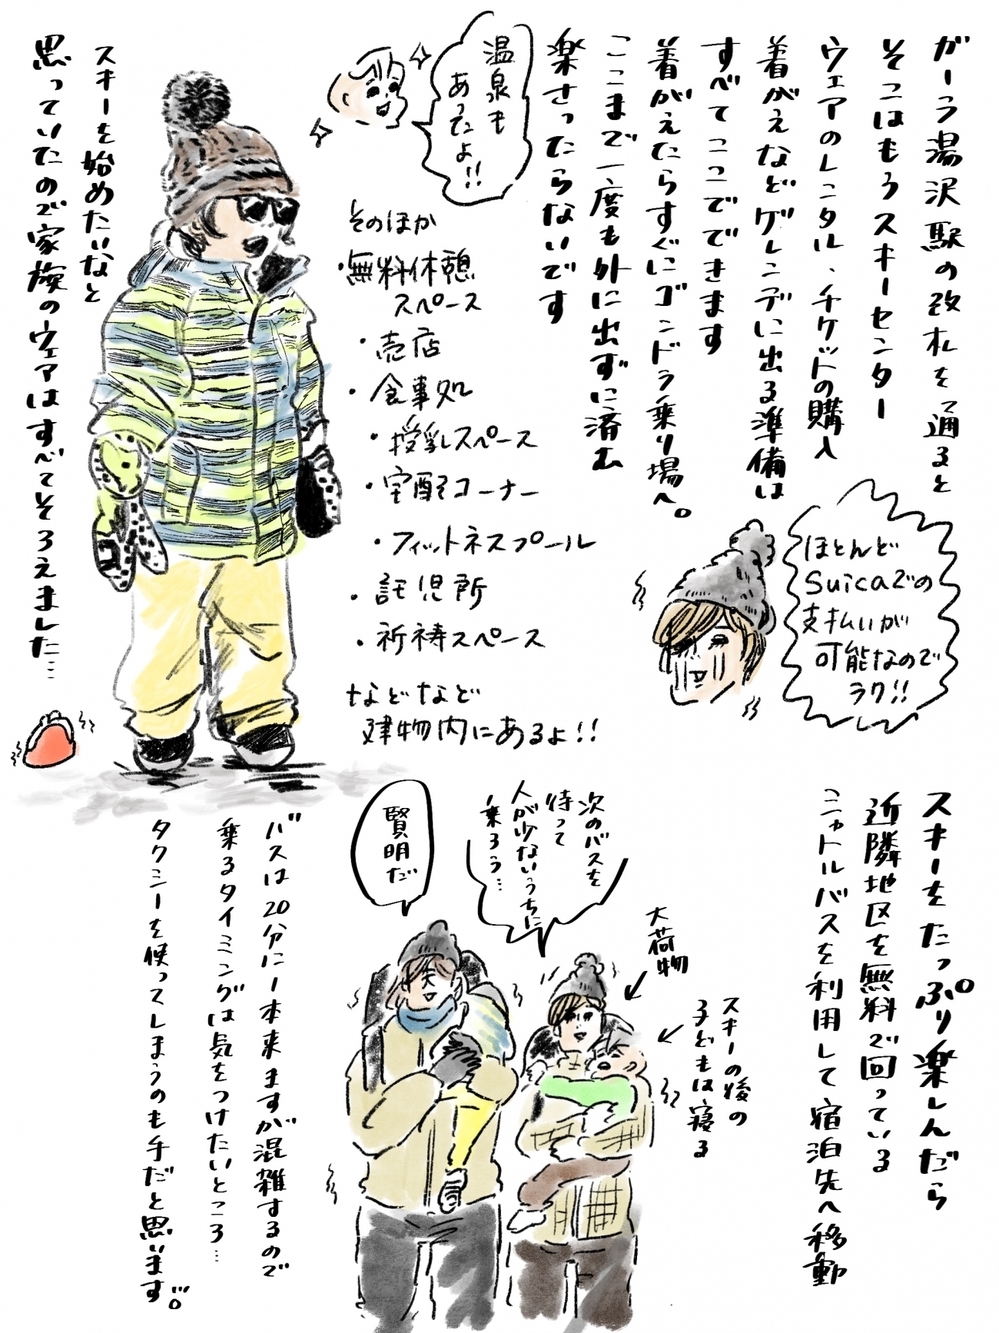 ガーラ湯沢駅の改札を通ると
そこはもうスキーセンター
ウェアのレンタル、チケットの購入
着がえなどゲレンデに出る準備は
すべてここでできます
着がえたらすぐにゴンドラ乗り場へ。
ここまで一度も外に出ずに済む
楽さったらないです
温泉も
あったよ!!
ほとんど
Suicaでの
支払いが
可能なので
ラク!!
そのほか
・無料休憩
スペース
・売店
・食事処
・授乳スペース
・宅配コーナー
・フィットネスプール
・託児所
・祈祷スペース
などなど
建物内にあるよ!!
スキーを始めたいなと
思っていたので家族のウェアはすべてそろえました…
スキーをたっぷり楽しんだら
近隣地区を無料で回っている
シャトルバスを利用して宿泊先へ移動
大荷物
スキーの後の
子どもは寝る
次のバスを
待って
人が少ないうちに
乗ろう…
賢明だ
バスは20分に1本来ますが混雑するので
乗るタイミングは気をつけたいところ…
タクシーを使ってしまうのも手だと思います。